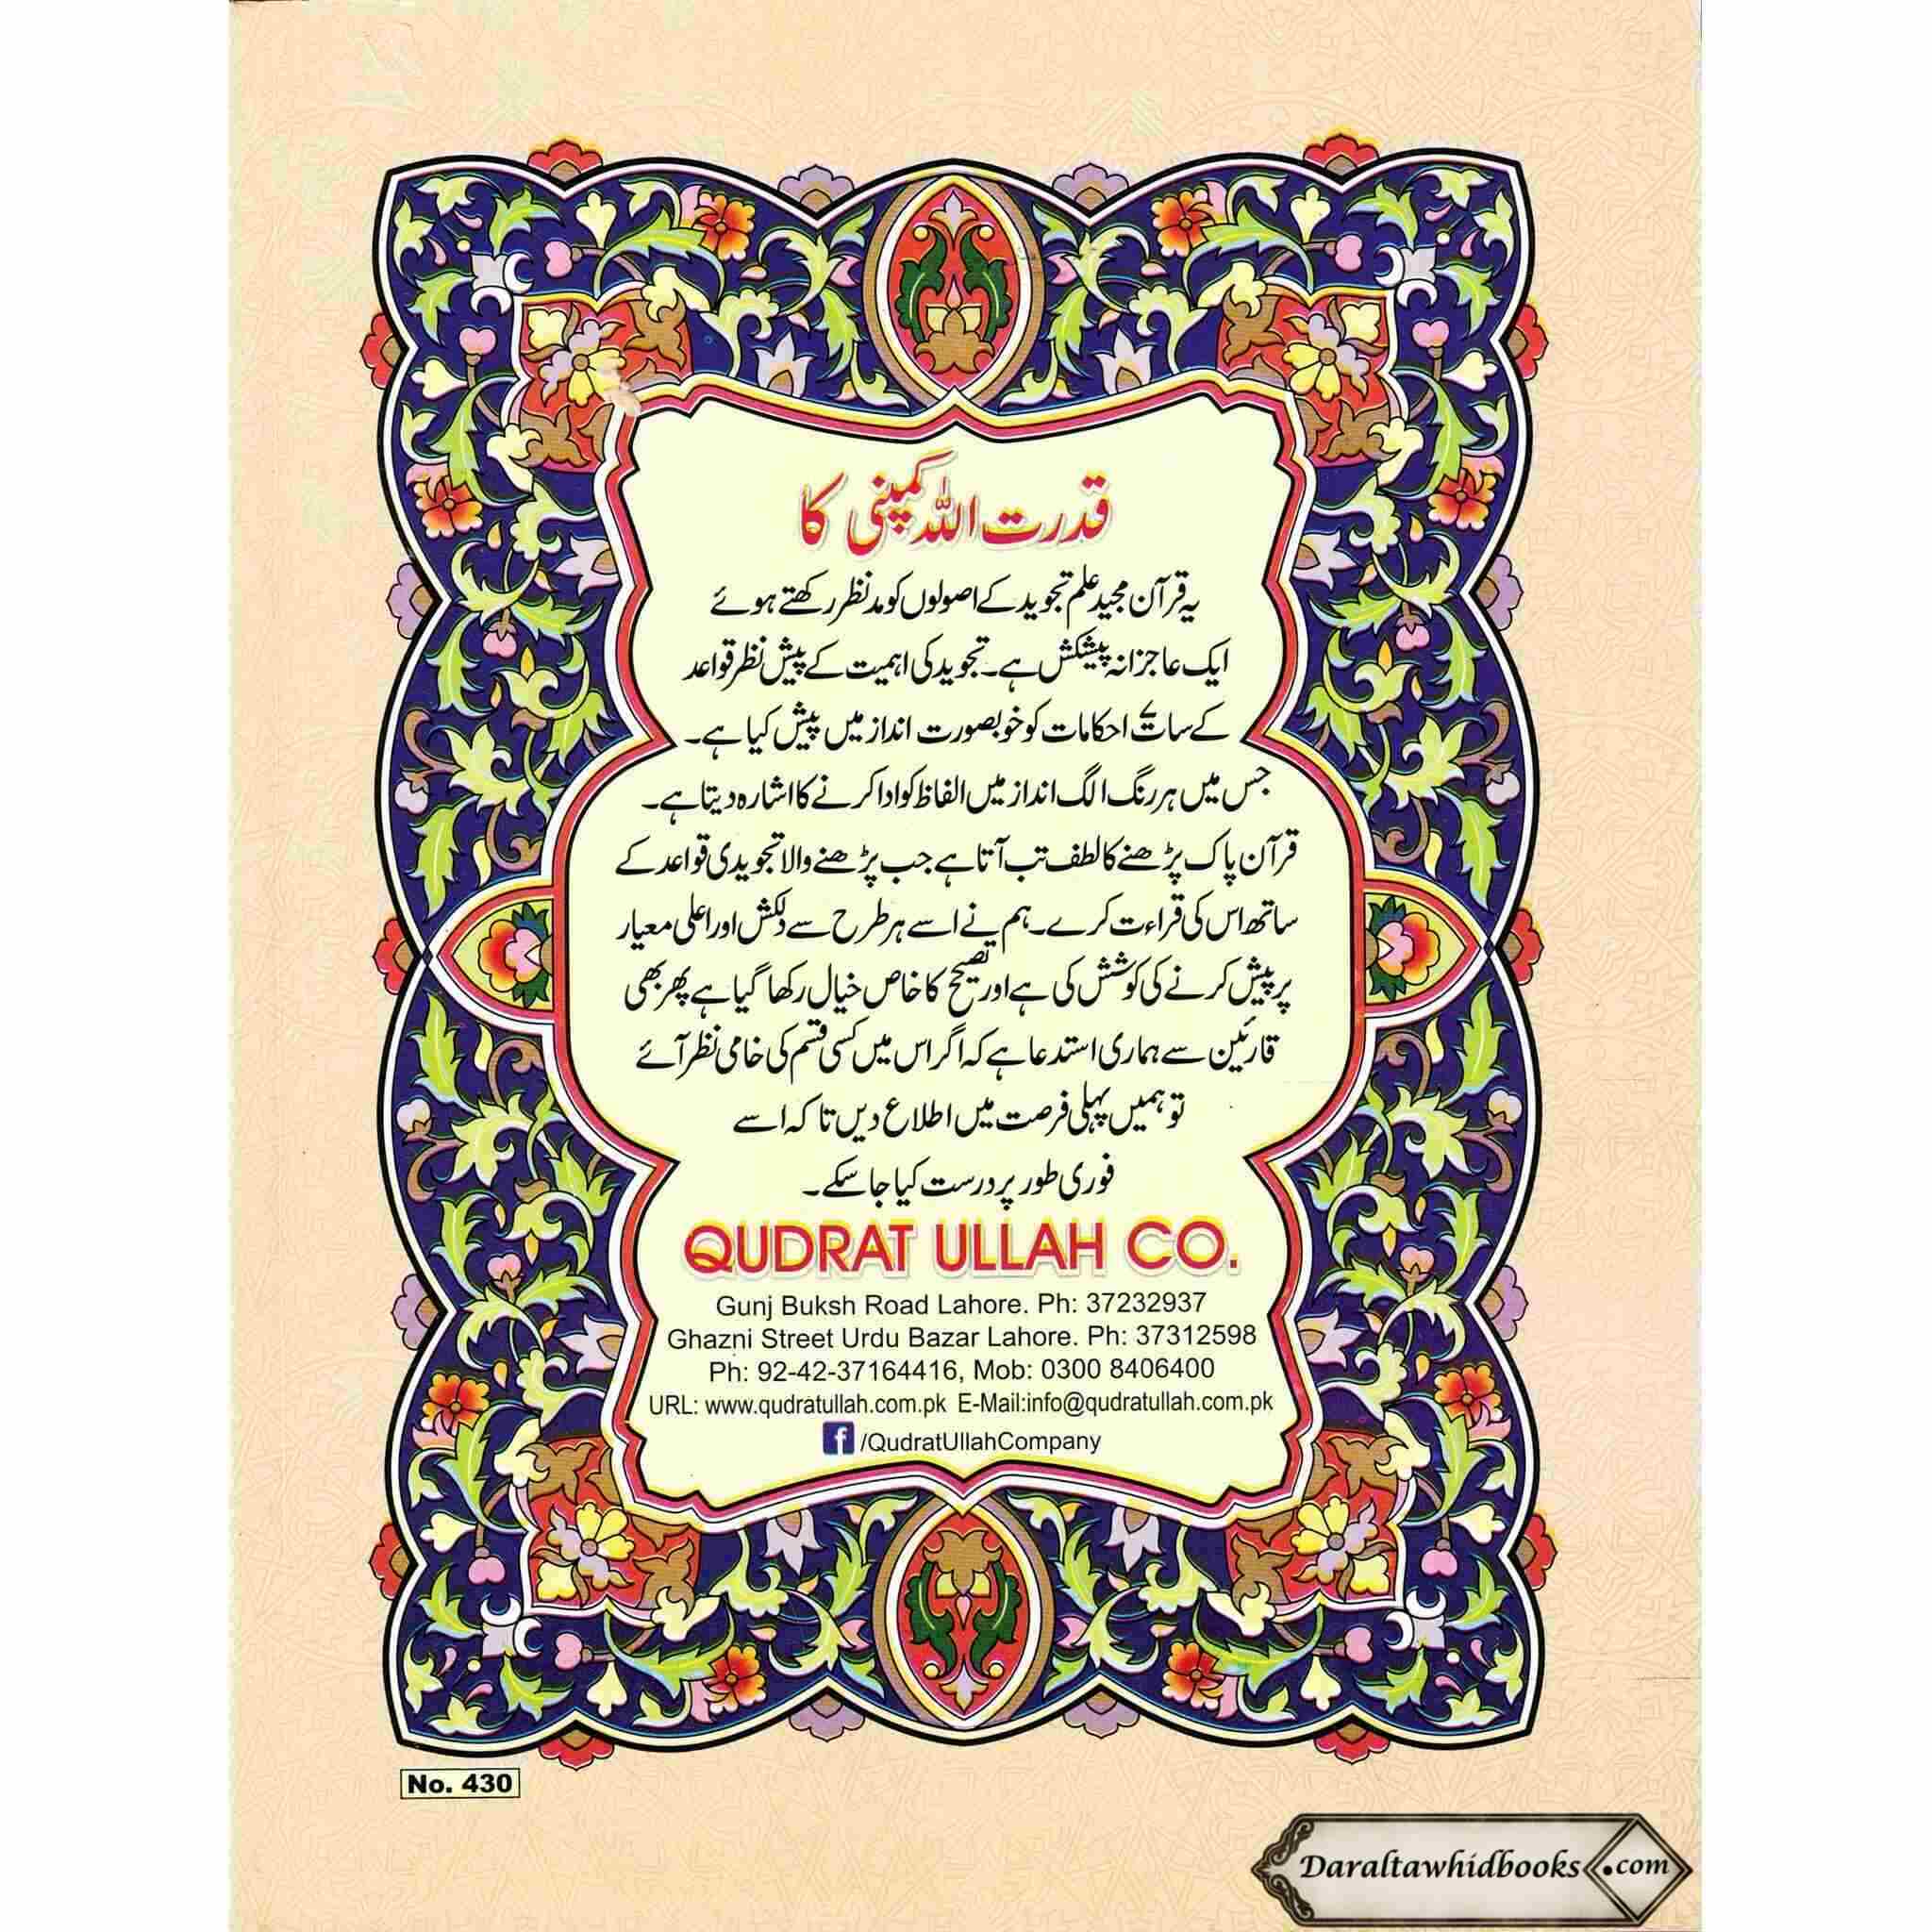 قدرت اللہ کمپنی کا
یہ قرآن مجید علم تجوید کے اصولوں کو مدنظر رکھتے ہوئے
ایک عاجزانہ پیشکش ہے۔ تجوید کی اہمیت کے پیش نظر قواعد
کے سات ۷ احکامات کو خوبصورت انداز میں پیش کیا ہے۔
جس میں ہر رنگ الگ انداز میں الفاظ کو ادا کرنے کا اشارہ دیتا ہے۔
قرآن پاک پڑھنے کا لطف تب آتا ہے جب پڑھنے والا تجویدی قواعد کے
ساتھ اس کی قراءت کرے۔ ہم نے اسے ہر طرح سے دلکش اور اعلی معیار
پر پیش کرنے کی کوشش کی ہے اور تصحیح کا خاص خیال رکھا گیا ہے پھر بھی
قارئین سے ہماری استدعا ہے کہ اگر اس میں کسی قسم کی خامی نظر آئے
تو ہمیں پہلی فرصت میں اطلاع دیں تا کہ اسے
فوری طور پر درست کیا جا سکے۔
QUDRAT ULLAH CO.
Gunj Buksh Road Lahore. Ph: 37232937
Ghazni Street Urdu Bazar Lahore. Ph: 37312598
Ph: 92-42-37164416, Mob: 0300 8406400
URL: www.qudratullah.com.pk E-Mail:info@qudratullah.com.pk
f /QudratUllahCompany
No. 430
Daraltawhidbooks.com